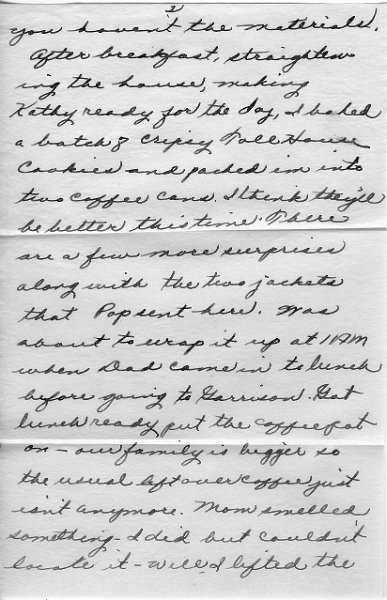 2
you haven't the materials.
After breakfast, straighten
ing the house, making
Kathy ready for the day, I baked
a batch of Cripsy Toll House
Cookies and packed em into
two coffee cans. I think they'll
be better this time. There
are a few more surprises
along with the two jackets
that Pop sent here. Was
about to wrap it up at 11AM
when Dad came in to lunch
before going to Garrison. Got
lunch ready put the coffee pot
on - our family is bigger so
the usual left over coffee just
isn't anymore. Mom smelled
something - I did but couldn't
locate it - well I lifted the